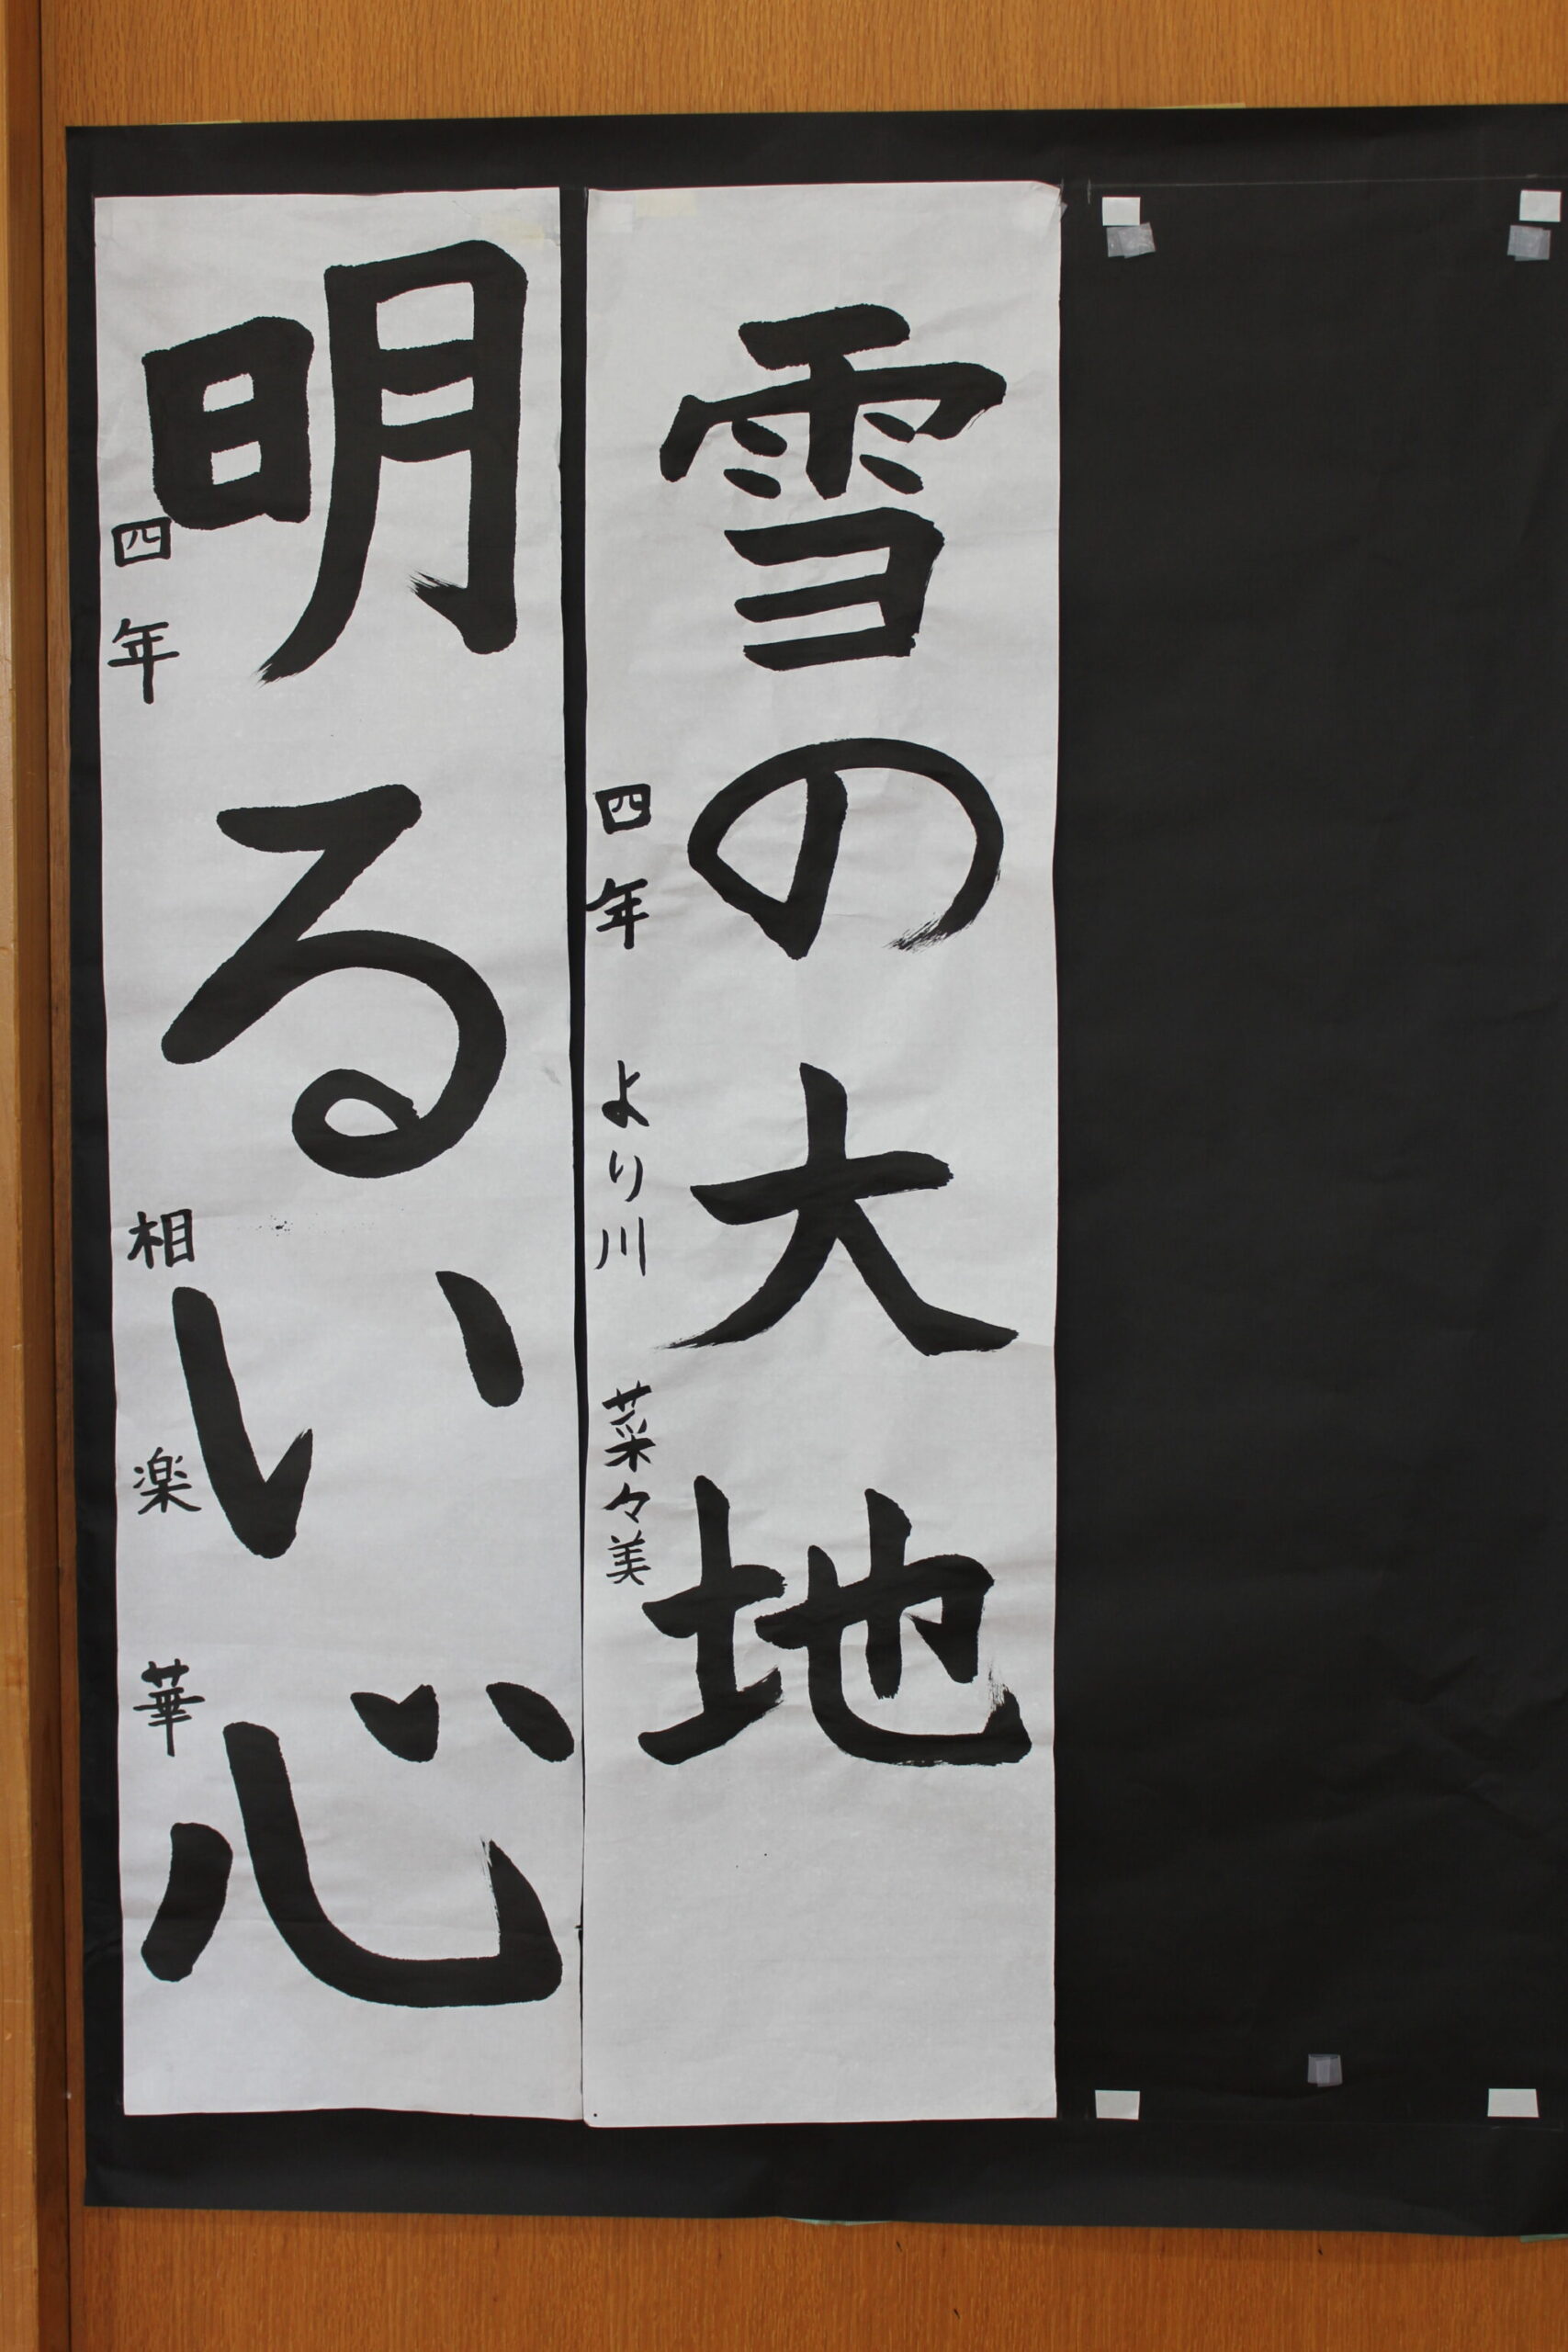 雪の大地
四年 より川 菜々美
明るい心
四年 相楽華